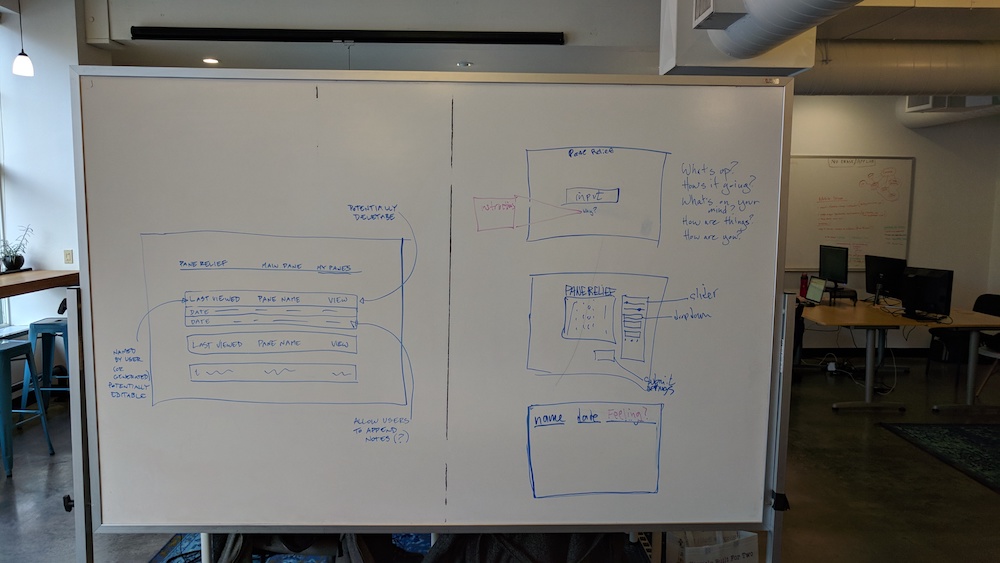 POTENTIALLY
PANE RELIEF MAIN PANE MY PANES
LAST VIEWED PANE NAME VIEW
DATE
DATE
LAST VIEWED PANE NAME VIEW
NAMED
BY USER
(OR
GENERATED)
POTENTIALLY
EDITABLE
ALLOW USERS
TO APPEND
NOTES (?)
Pane Relief
input
why?
What's up?
How's it going?
What's on your
mind?
How are things?
How are you?
PANE RELIEF
slider
dropdown
submit
name date Feeling?